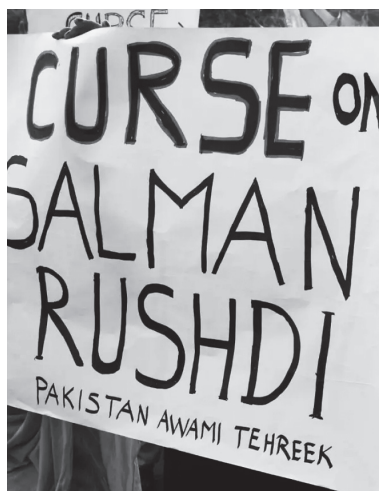 CURSE
CURSE ON
SALMAN
RUSHDI
PAKISTAN AWAMI TEHREEK